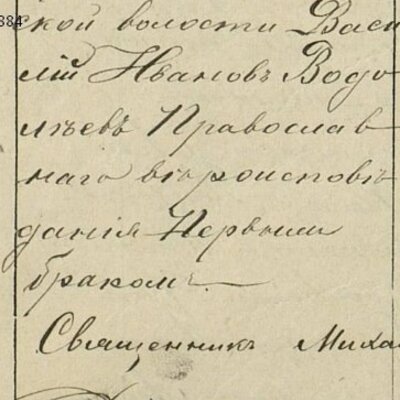 884
ской волости Васи
лій Ивановъ Водо
лѣевъ Православ
наго вѣроисповѣ
данія Первым
бракомъ
Священникъ Миха